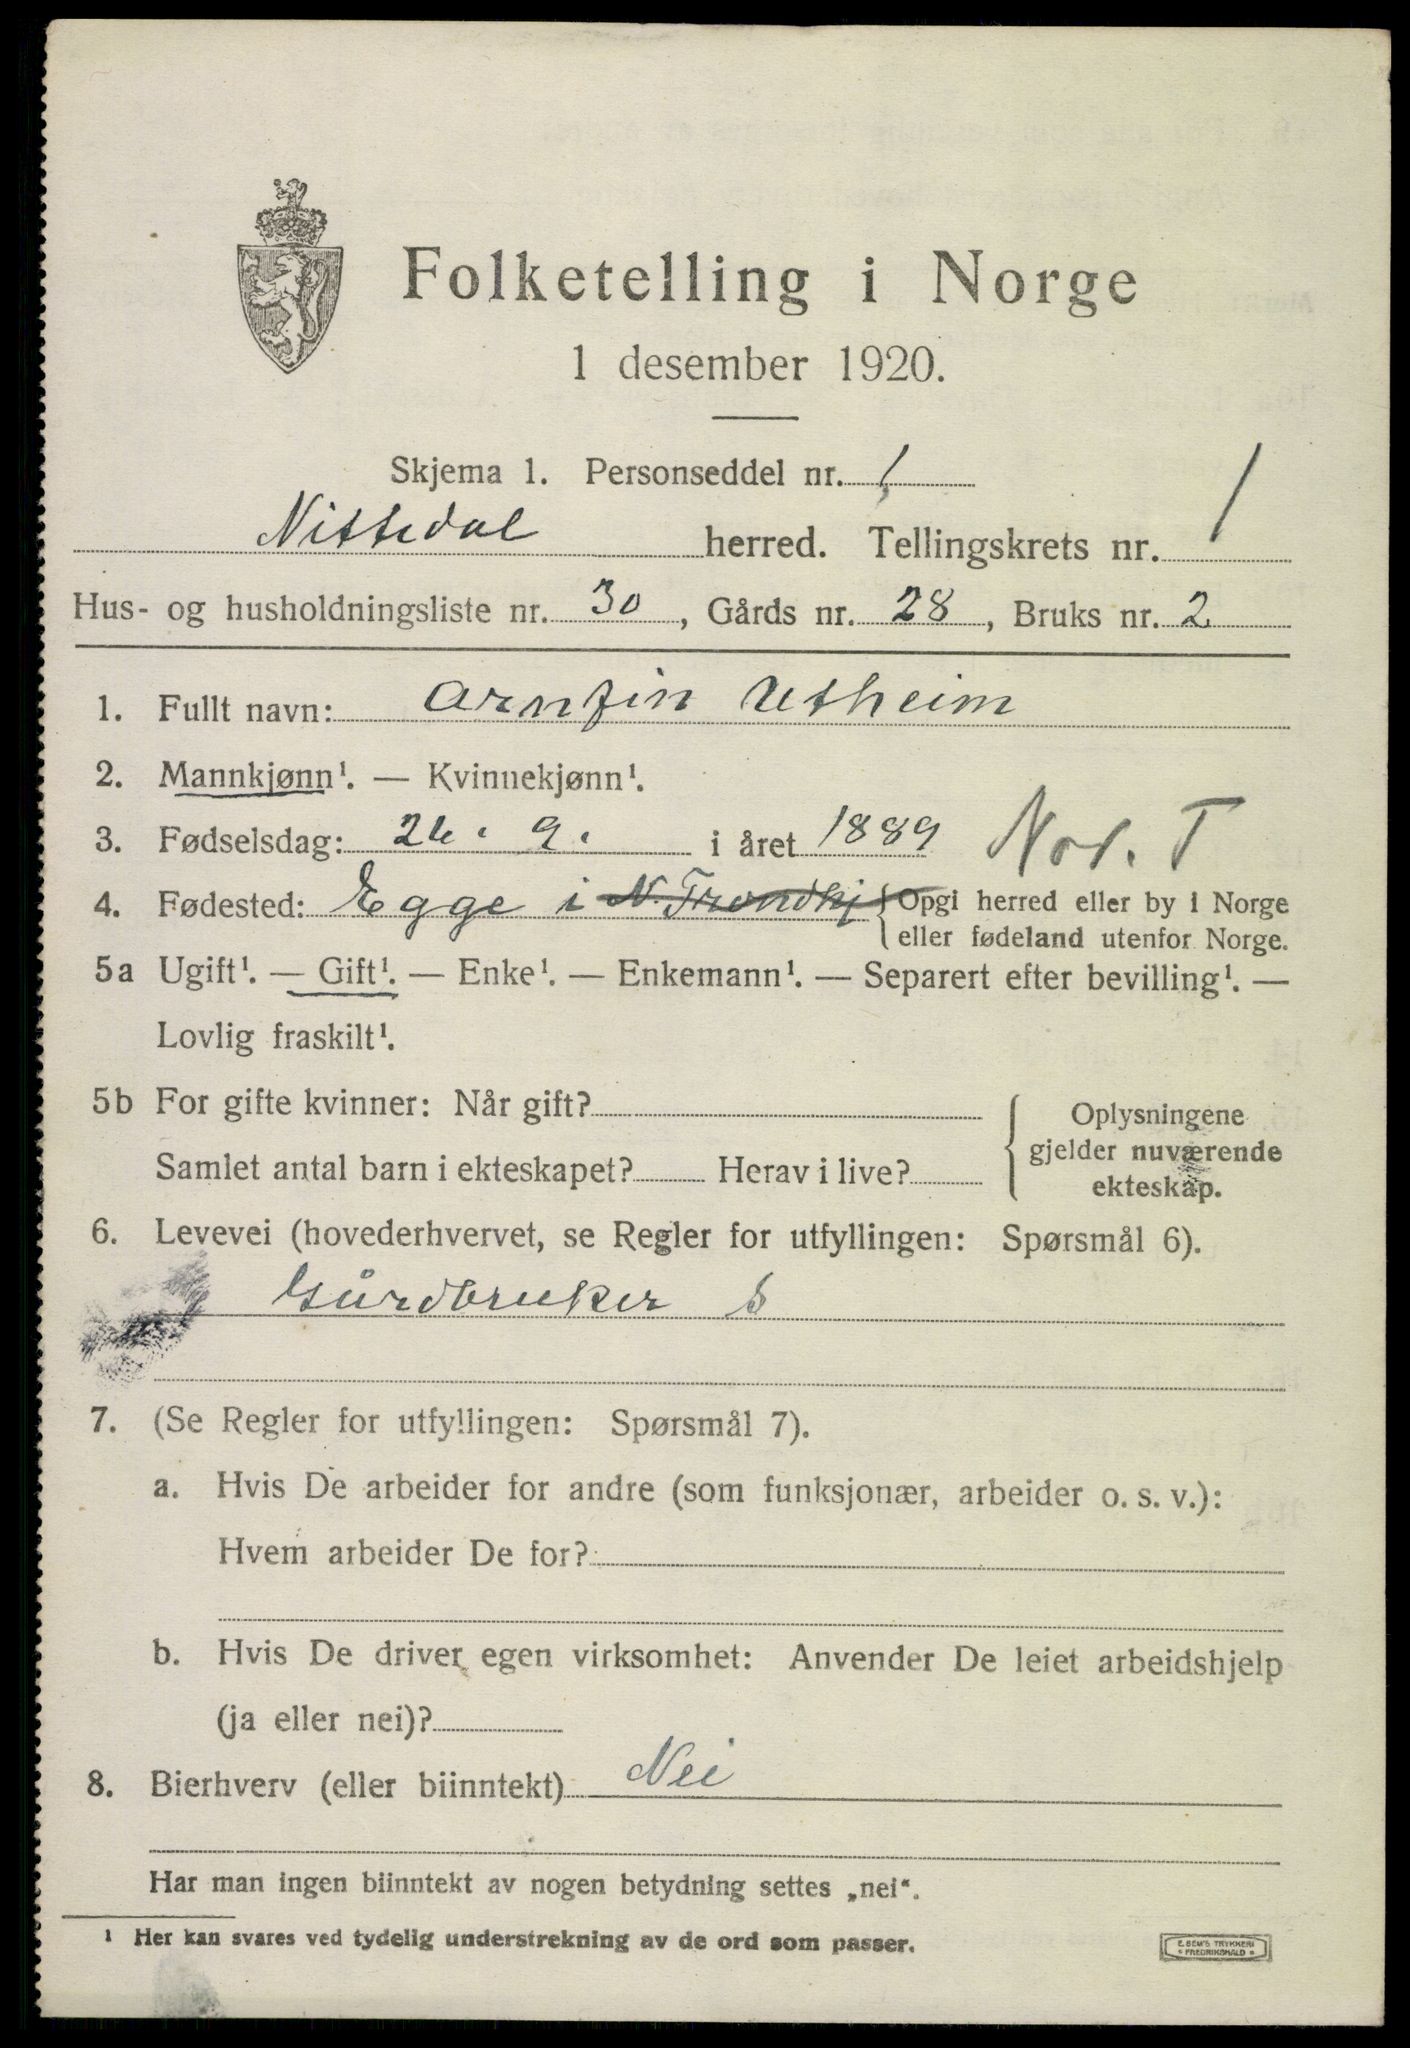 Folketelling i Norge
1 desember 1920.
Skjema 1. Personseddel nr. 1
Nittedal herred. Tellingskrets nr. 1
Hus- og husholdningsliste nr. 30, Gårds nr. 28, Bruks nr. 2
1. Fullt navn: Arnfin Utheim
2. Mannkjønn¹. — Kvinnekjønn¹.
3. Fødselsdag: 26. 9. i året 1889 Nor. T
4. Fødested: Egge i N. Trondhj { Opgi herred eller by i Norge
eller fødeland utenfor Norge.
5a Ugift¹. — Gift¹. — Enke¹. — Enkemann¹. — Separert efter bevilling¹. —
Lovlig fraskilt¹.
5b For gifte kvinner: Når gift?
Samlet antal barn i ekteskapet? Herav i live?
Oplysningene
gjelder nuværende
ekteskap.
6. Levevei (hovederhvervet, se Regler for utfyllingen: Spørsmål 6).
Gårdbruker s
7. (Se Regler for utfyllingen: Spørsmål 7).
a. Hvis De arbeider for andre (som funksjonær, arbeider o. s. v.):
Hvem arbeider De for?
b. Hvis De driver egen virksomhet: Anvender De leiet arbeidshjelp
(ja eller nei)?
8. Bierhverv (eller biinntekt) Nei
Har man ingen biinntekt av nogen betydning settes „nei“.
¹ Her kan svares ved tydelig understrekning av de ord som passer.
E. SEM'S TRYKKERI
* FREDRIKSHALD *